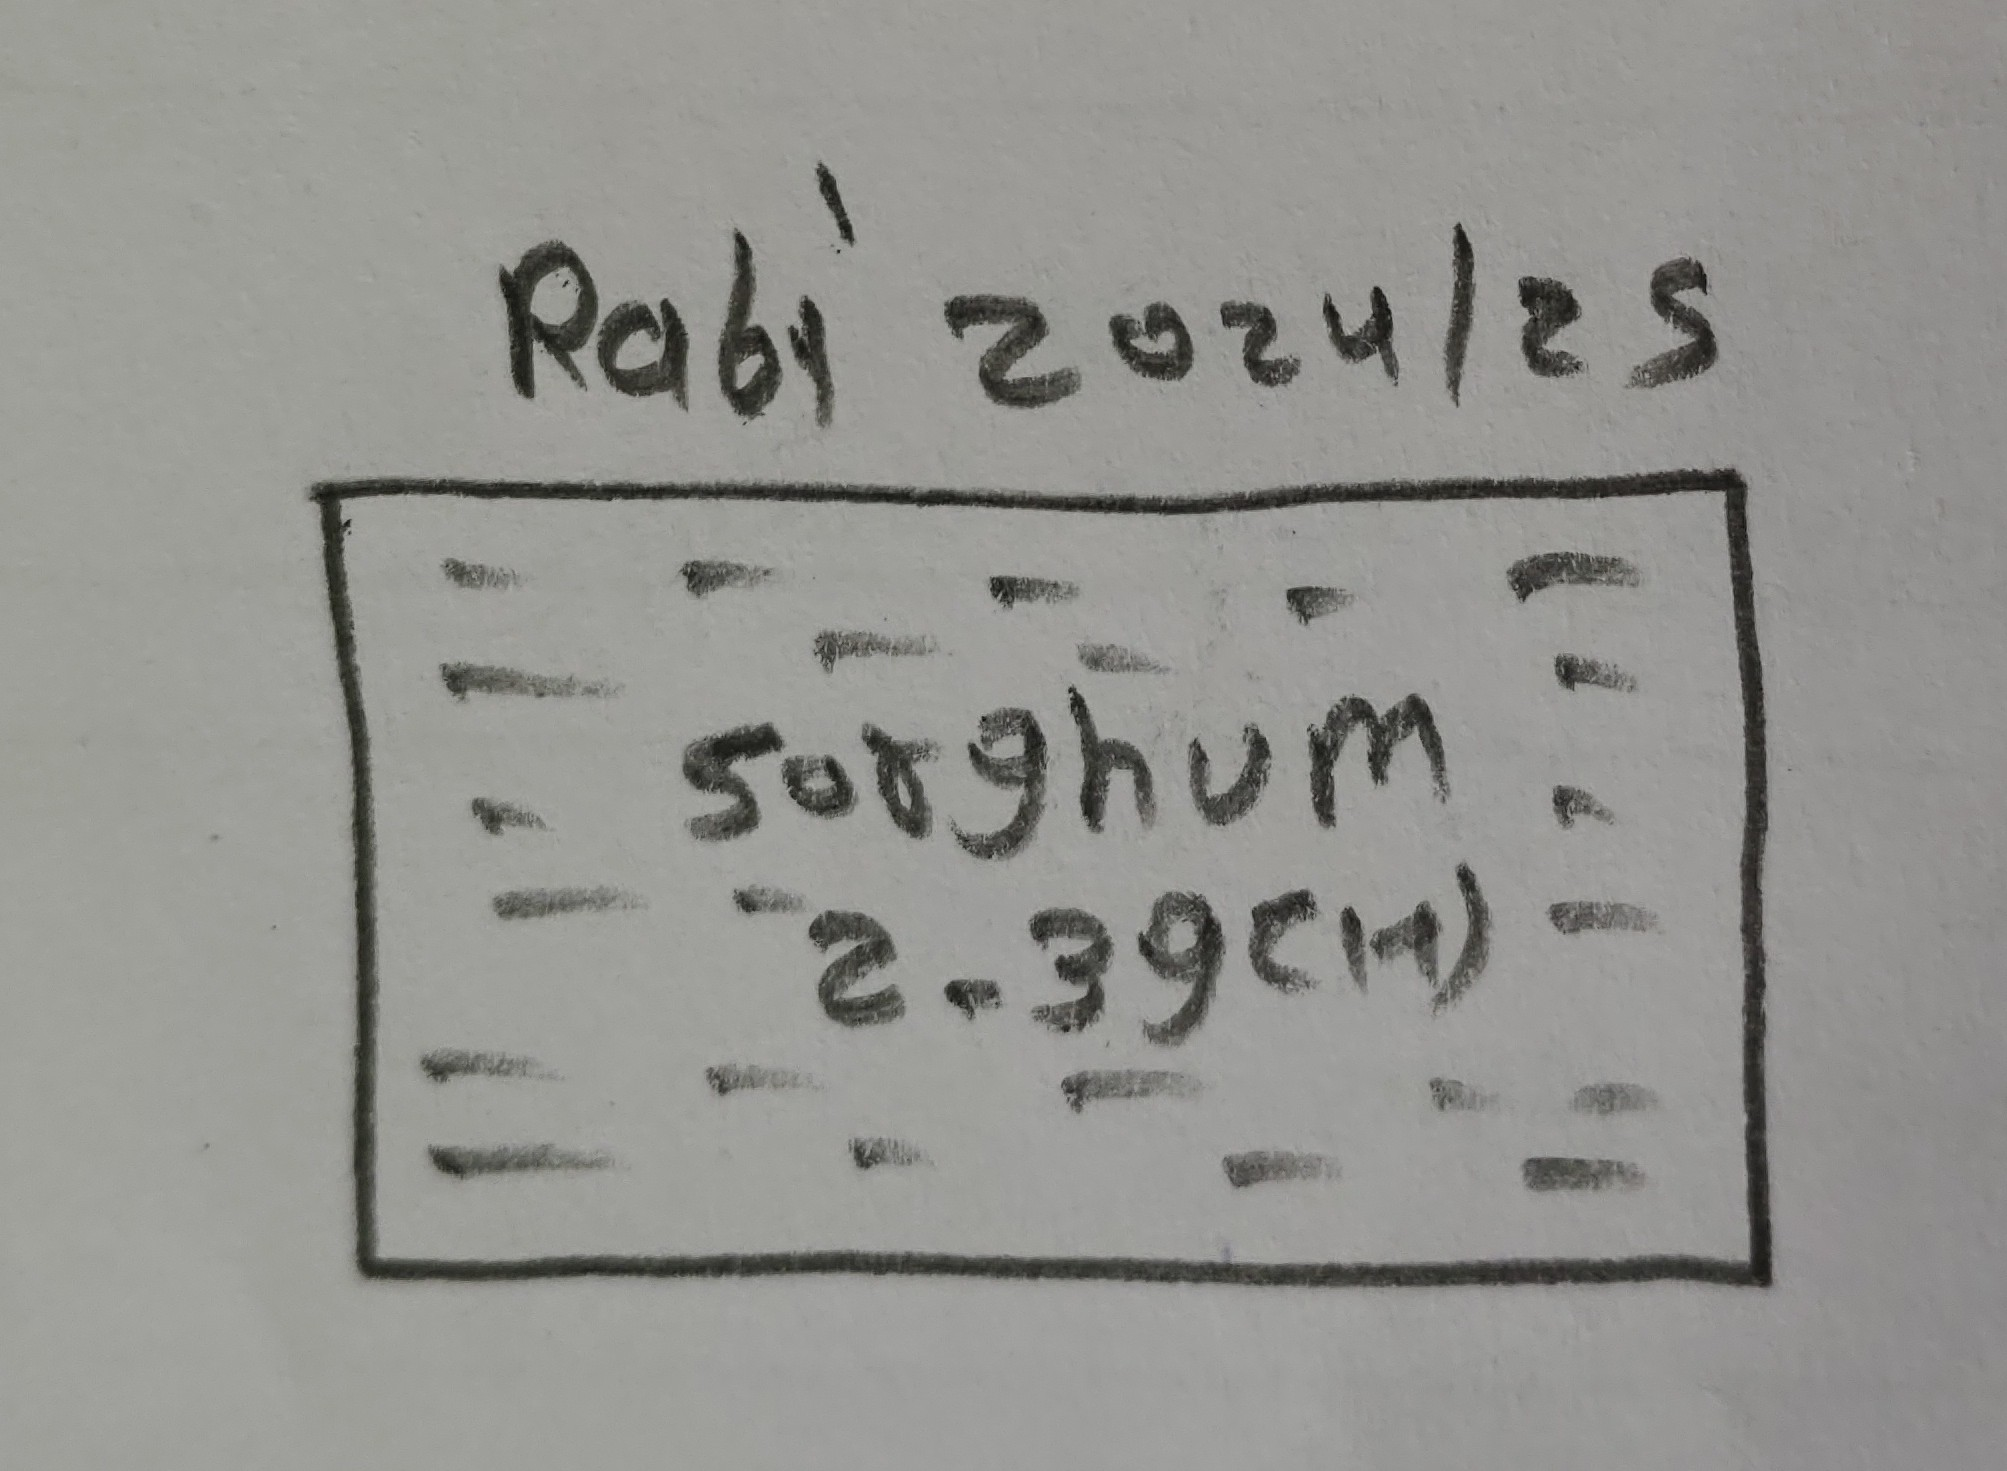 Rabi 2024/25
Sorghum
2.39(H)